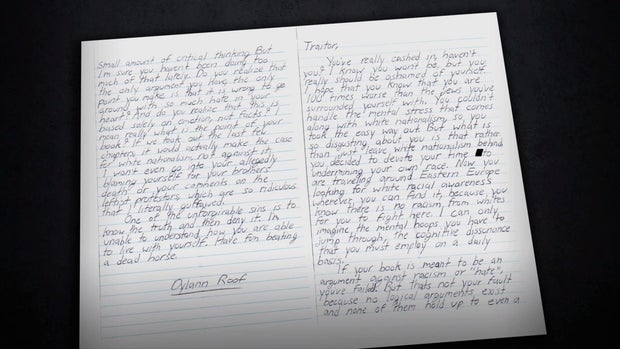 Traitor,
You've really cashed in, haven't
you? I know you won't be, but you
really should be ashamed of yourself.
I hope that you know that you are
100 times worse than the Jews you've
surrounded yourself with. You couldn't
handle the mental stress that comes
along with white nationalism, so you
took the easy way out. But what is
so disgusting about you is that rather
than just leave white nationalism behind
you decided to devote your time to
undermining your own race. Now you
are traveling around Eastern Europe
looking for white racial awareness
wherever you can find it, because you
know there is no racism from whites
for you to fight here. I can only
imagine the mental hoops you have to
jump through, the cognitive dissonance
that you must employ on a daily
basis.
If your book is meant to be an
argument against racism or "hate",
you've failed. But thats not your fault
because no logical arguments exist
and none of them hold up to even a
Small amount of critical thinking. But
I'm sure you haven't been doing too
much of that lately. Do you realize that
the only argument you have, the only
point you make, is that it is wrong to go
around with so much hate in your
heart? And do you realize that this is
based solely on emotion, not facts? I
mean really what is the point of your
book? If we took out the last few
chapters, it would actually make the case
for white nationalism, not against it.
I won't even go into your allegedly
blaming yourself for your brothers'
death, or your comments on the
leftist protestors, which are so ridiculous
that I literally guffawed.
One of the unforgivable sins is to
know the truth and then deny it. I'm
unable to understand how you are able
to live with yourself. Have fun beating
a dead horse.
Dylann Roof